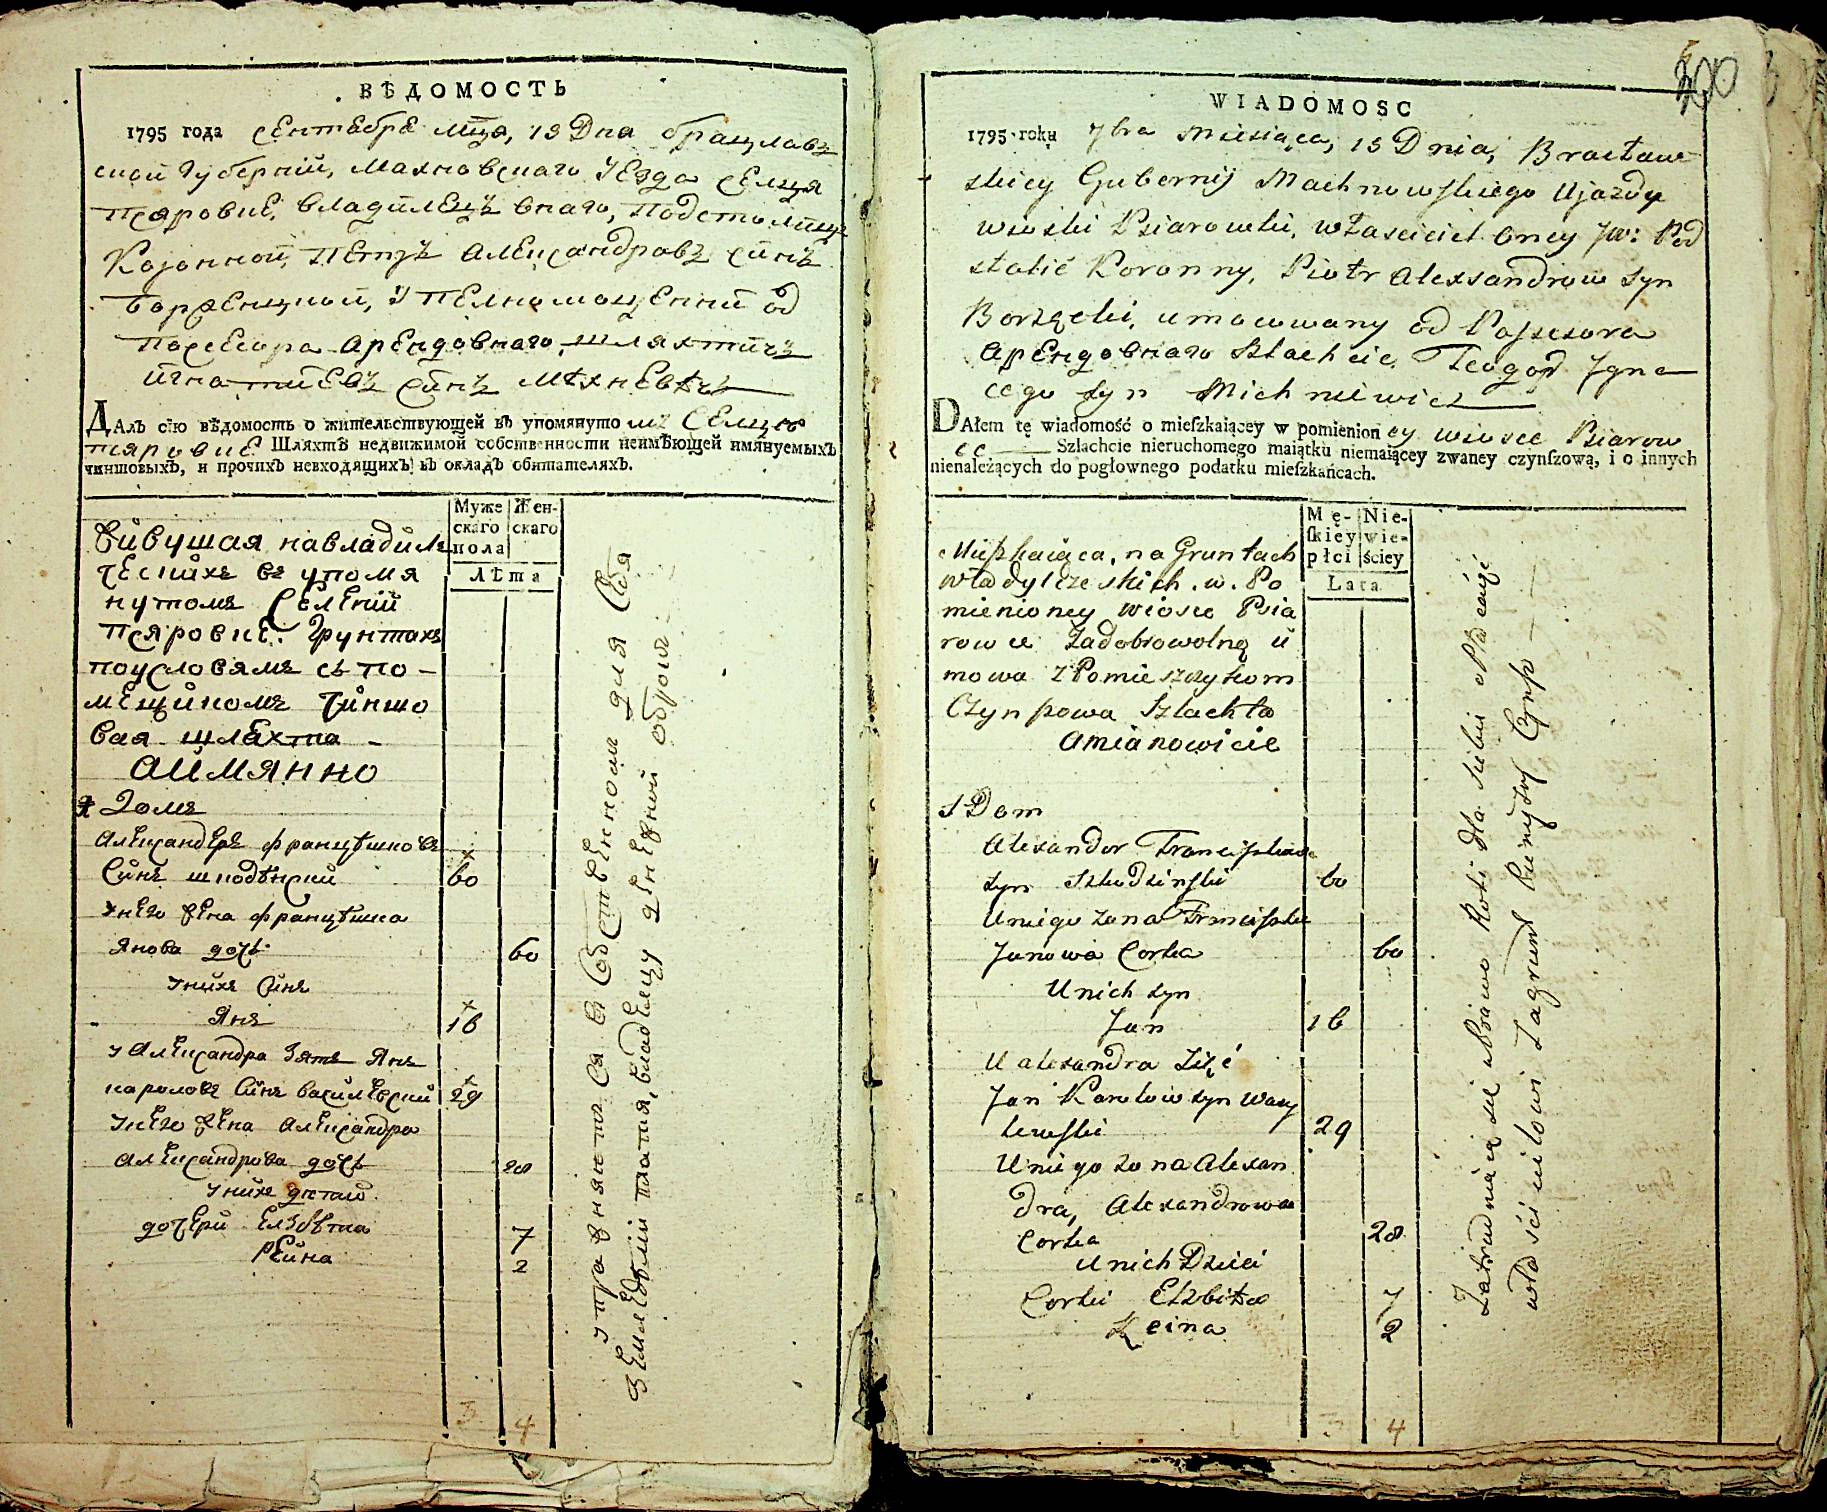 ВѢДОМОСТЬ
1795 года Сентебря мца, 13 Дна брацлавъ
ской Губерній, Махновскаго уезда Селця
Псяровке, владилецъ внаго, Подстолицъ
Коронной, Петръ Александровъ синъ
Борженцкой, упелномоценни од
Посесора Арендовнаго, шляхтичъ
Игнатиевъ синъ Мѣхневѣчъ
ДАлъ сїю вѣдомость о жительствующей въ упомянуто мъ Селцѣ
Псяровке Шляхтѣ недвижимой собственности неимѣющей имянуемыхъ
чиншовыхъ, и прочихъ невходящихъ въ окладъ обитателяхъ.
Муже
скаго
пола
Жен-
скаго
Лѣта
Живушая навладиле
ческихъ въ упомя
нутомъ Селеній
Псяровке. Грунтахъ
поусловямъ съ по-
мещикомъ Чиншо
вая шляхта -
Аимянно
1 Домъ
Александеръ францѣшковъ
Синъ шкодѣнский 60
унего жена францѣшка
Янова дочъ 60
унихъ Синъ
Янъ 16
у Александра Зять Янъ
кароловъ Синъ василевский 29
унего жена Александра
Александрова дочъ 28
унихъ дѣтей
дочери Елзбѣта 7
Рейна 2
3 4
упражняется Ся въ Собственной для Себя
Земледѣлии платя, владелцу денежной оброкъ
200
WIADOMOSC
1795 roku 7bra Miesiąca, 13 Dnia, Bracław
skiey Gubernij Machnowskiego Ujazdu
wioski Psiarowki, właściciel oney JW: Pod
stolic Koronny, Piotr Alexandrow syn
Borzęcki, umocowany od Possesora
Арендовнаго Szlachcic, Teodor Igna
cego syn Michniewicz
DAłem tę wiadomość o mieſzkaiącey w pomienion ey wiosce Psiarow
ce Szlachcie nieruchomego maiątku niemaiącey zwaney czynſzową, i o innych
nienależących do pogłownego podatku mieſzkańcach.
Mę-
ſkiey
płci
Nie-
wie-
ściey
Lata
Mieszkaiąca, na Gruntach
władylczeskich. w. Po
mienioney wiosce Psia
rowce zadobrowolną u
mowa z Pomieszczykom
Czynszowa Szlachta
Amianowicie
1 Dom
Alexander Franciszków
syn Szkodzinski 60
Uniego zona Franciszka
Janowa Corka 60
Unich syn
Jan 16
U alexandra Zięć
Jan Karolow syn Wasy
lewski 29
Uniego zona Alexan
dra, Alexandrowa
Corka 28
Unich Dzieci
Corki Elzbieta 7
Reina 2
3 4
Zatrudniaią się uprawą Roli dla siebie opłacaiąc
właścicielowi Zagrunt Rumysłof Czynsz